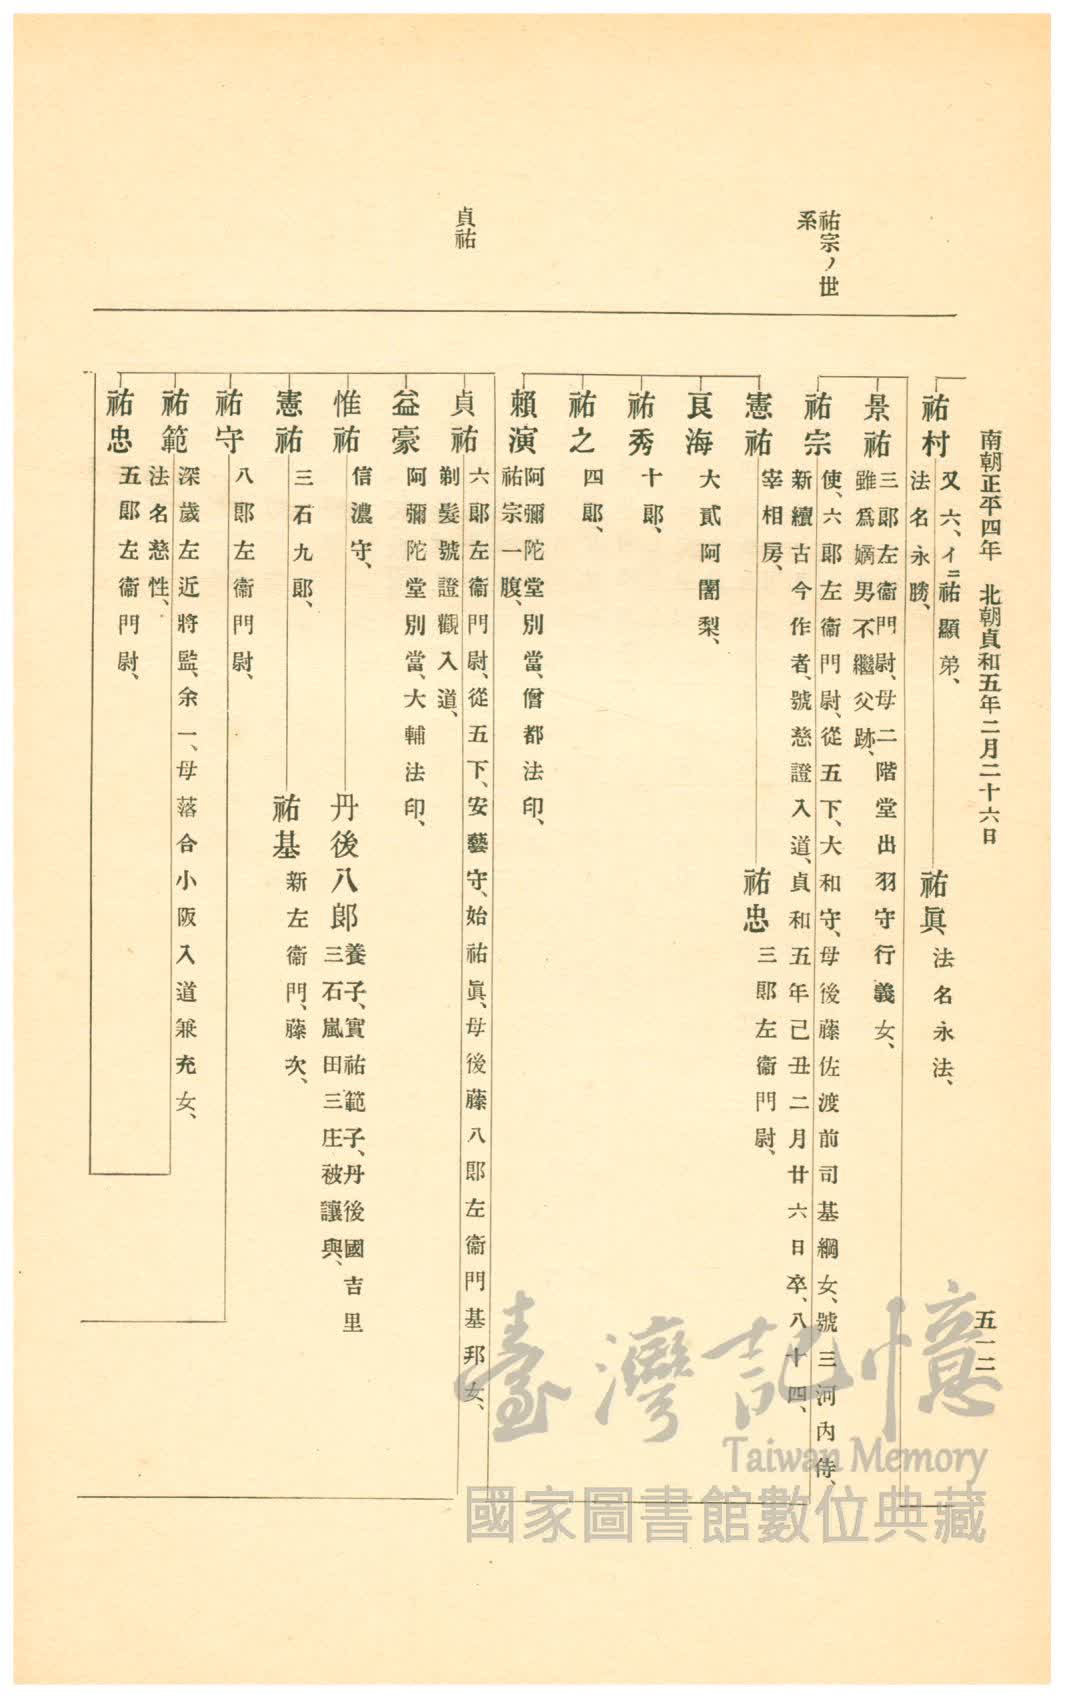 南朝正平四年　北朝貞和五年二月二十六日
五一二
祐宗ノ世
系
貞祐
祐村
又六、イニ祐顯弟、
法名永勝、
祐眞、法名永法、
景祐
三郎左衞門尉、母二階堂出羽守行義女、
雖爲嫡男不繼父跡、
祐宗
使、六郎左衞門尉、從五下、大和守、母後藤佐渡前司基綱女、號三河內侍、
新續古今作者、號慈證入道、貞和五年己丑二月廿六日卒、八十四、
憲祐
宰相房、
祐忠
三郎左衞門尉、
良海
大貳阿闍梨、
祐秀
十郎、
祐之
四郎、
賴演
阿彌陀堂別當、僧都法印、
祐宗一腹、
貞祐
六郎左衞門尉、從五下、安藝守、始祐眞、母後藤八郎左衞門基邦女、
剃髮號證觀入道、
益豪
阿彌陀堂別當、大輔法印、
惟祐
信濃守、
丹後八郎
養子、實祐範子、丹後國吉里
三石嵐田三庄被讓與、
憲祐
三石九郎、
祐基
新左衞門、藤次、
祐守
八郎左衞門尉、
祐範
深歲左近將監、余一、母落合小阪入道兼充女、
法名慈性、
祐忠
五郎左衞門尉、
臺灣記憶
Taiwan Memory
國家圖書館數位典藏